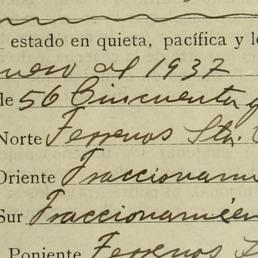 estado en quieta, pacífica y
enero al 1937
de 56 Cincuenta y
Norte Terrenos Sta.
Oriente Fraccionami
Sur Fraccionamien
Poniente Terrenos